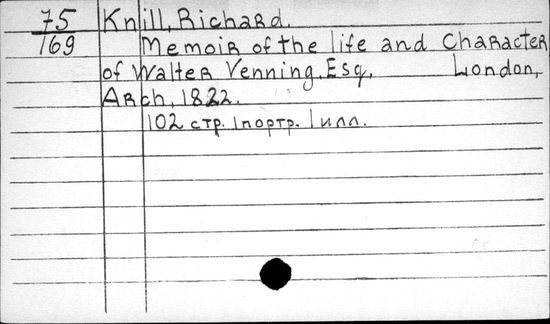 75 Knill, Richard.
169 Memoir of the life and Character
of Walter Venning, Esq. London,
Arch, 1822.
102 стр. 1 портр. 1 илл.